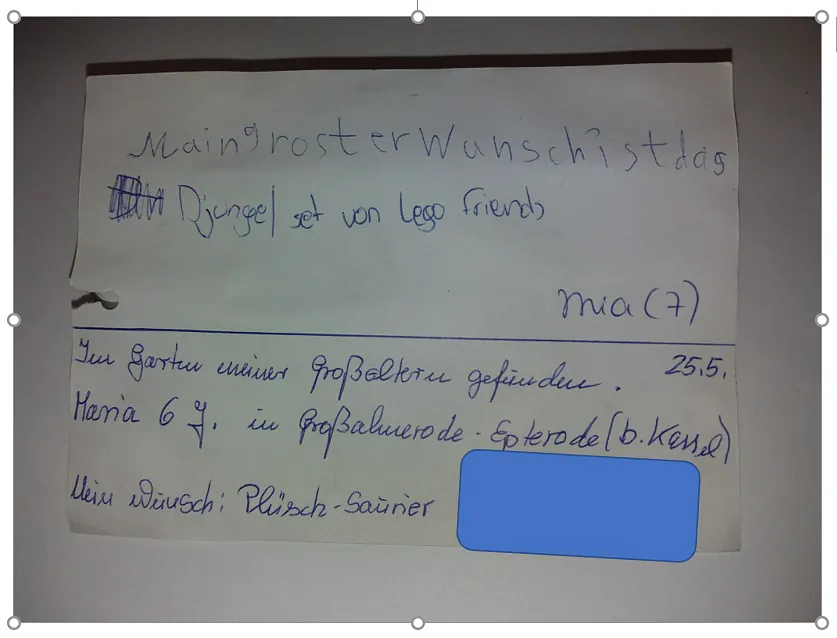 Maingroster Wunsch ist das
Djungel set von Lego friends
Mia (7)
Im Garten meiner Großeltern gefunden. 25.5.
Maria 6 J. in Großalmerode-Epterode (b. Kassel)
Mein Wunsch: Plüsch-Saurier